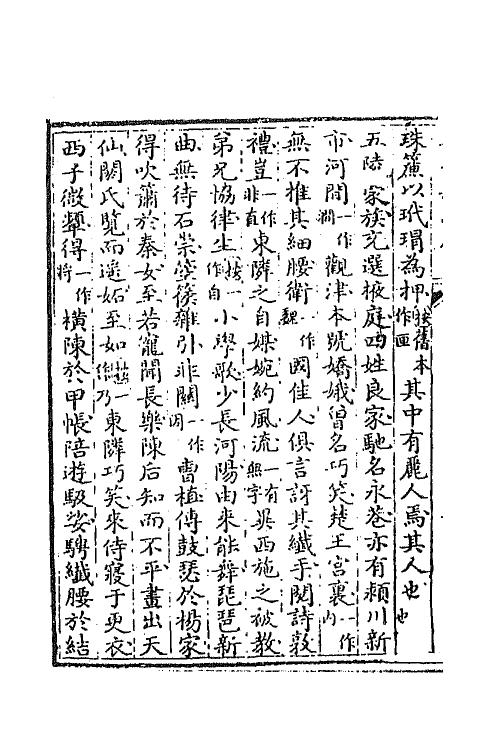 珠簾以玳瑁為押按舊本作匣其中有麗人焉其人也也
五陵家族充選掖庭四姓良家馳名永巷亦有潁川新
市河間一作澗觀津本號嬌娥曾名巧笑楚王宮裏一作內
無不推其細腰衛一作魏國佳人俱言訝其纖手閱詩敦
禮豈一作非直東隣之自媒婉約風流一有無字異西施之被教
弟兄協律生按一作自小學歌少長河陽由來能舞琵琶新
曲無待石崇箜篌雜引非關一作因曹植傳鼓瑟於楊家
得吹簫於秦女至若寵聞長樂陳后知而不平畫出天
仙閼氏覽而遙妬至如一作乃東隣巧笑來侍寢于更衣
西子微顰得一作將橫陳於甲帳陪遊馺娑騁纖腰於結